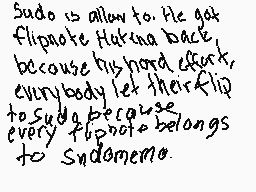 Sudo is allow to. He got
flipnote Hatena back,
because his hard effort,
everybody let their flip
to sudo because
every flipnote belongs
to Sudomemo.